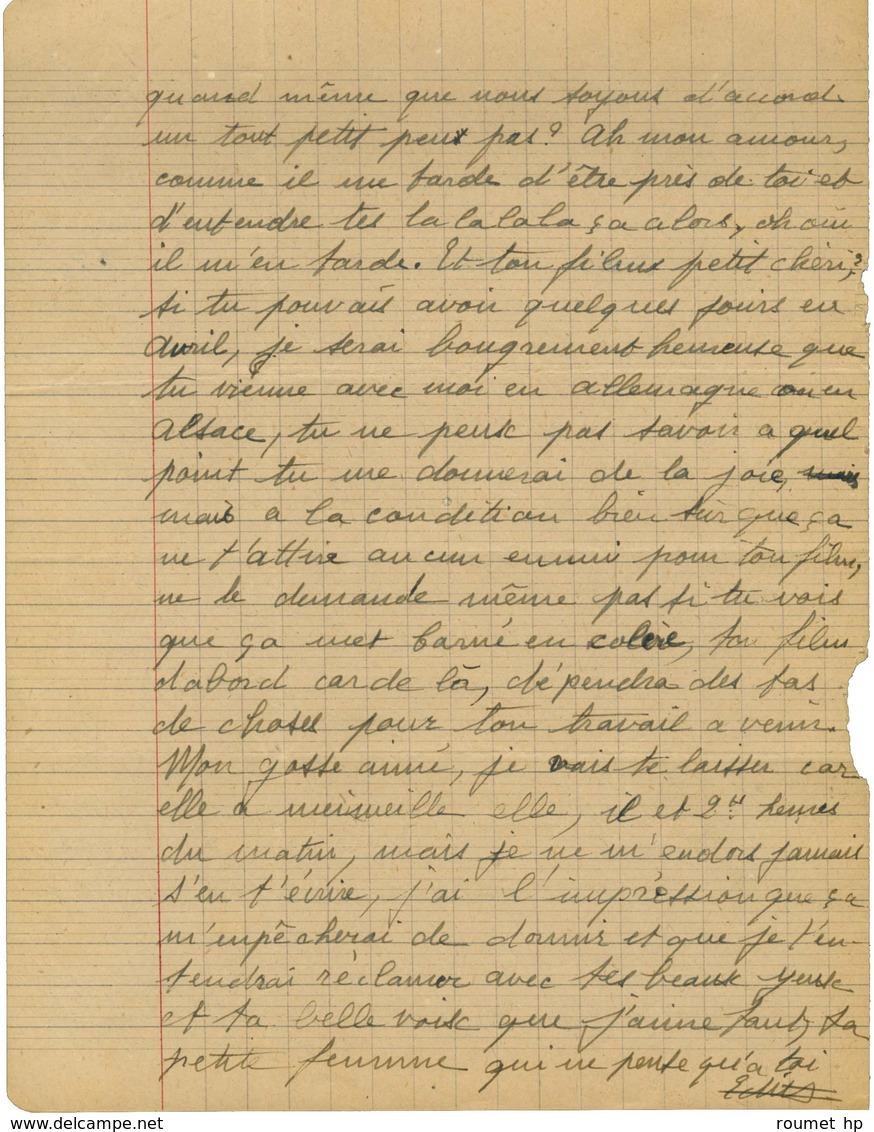 quand même que nous soyons d'accord
un tout petit peux pas? Ah mon amour,
comme il me tarde d'être près de toi et
d'entendre tes la la la la ça alors, oh oui
il m'en tarde. Et ton film petit chéri?
si tu pouvais avoir quelques jours en
avril, je serai bougrement heureuse que
tu vienne avec moi en allemagne ou en
alsace, tu ne peux pas savoir a quel
point tu me donnerai de la joie, mais
mais a la condition bien sûr que ça
ne t'attire aucun ennui pour ton film,
ne le demande même pas si tu vois
que ça met Carné en colère, ton film
dabord car de là, dépendra des tas
de choses pour ton travail a venir.
Mon gosse aimé, je vais te laisser car
elle a meirveille elle, il et 2H heures
du matin, mais je ne m'endors jamais
s'en t'écrire, j'ai l'impréssion que ça
m'enpêcherai de dormir et que je t'en-
tendrai réclamer avec tes beaux yeux
et ta belle voix que j'aime tant, ta
petite femme qui ne pense qu'a toi
Edith
roumet hp